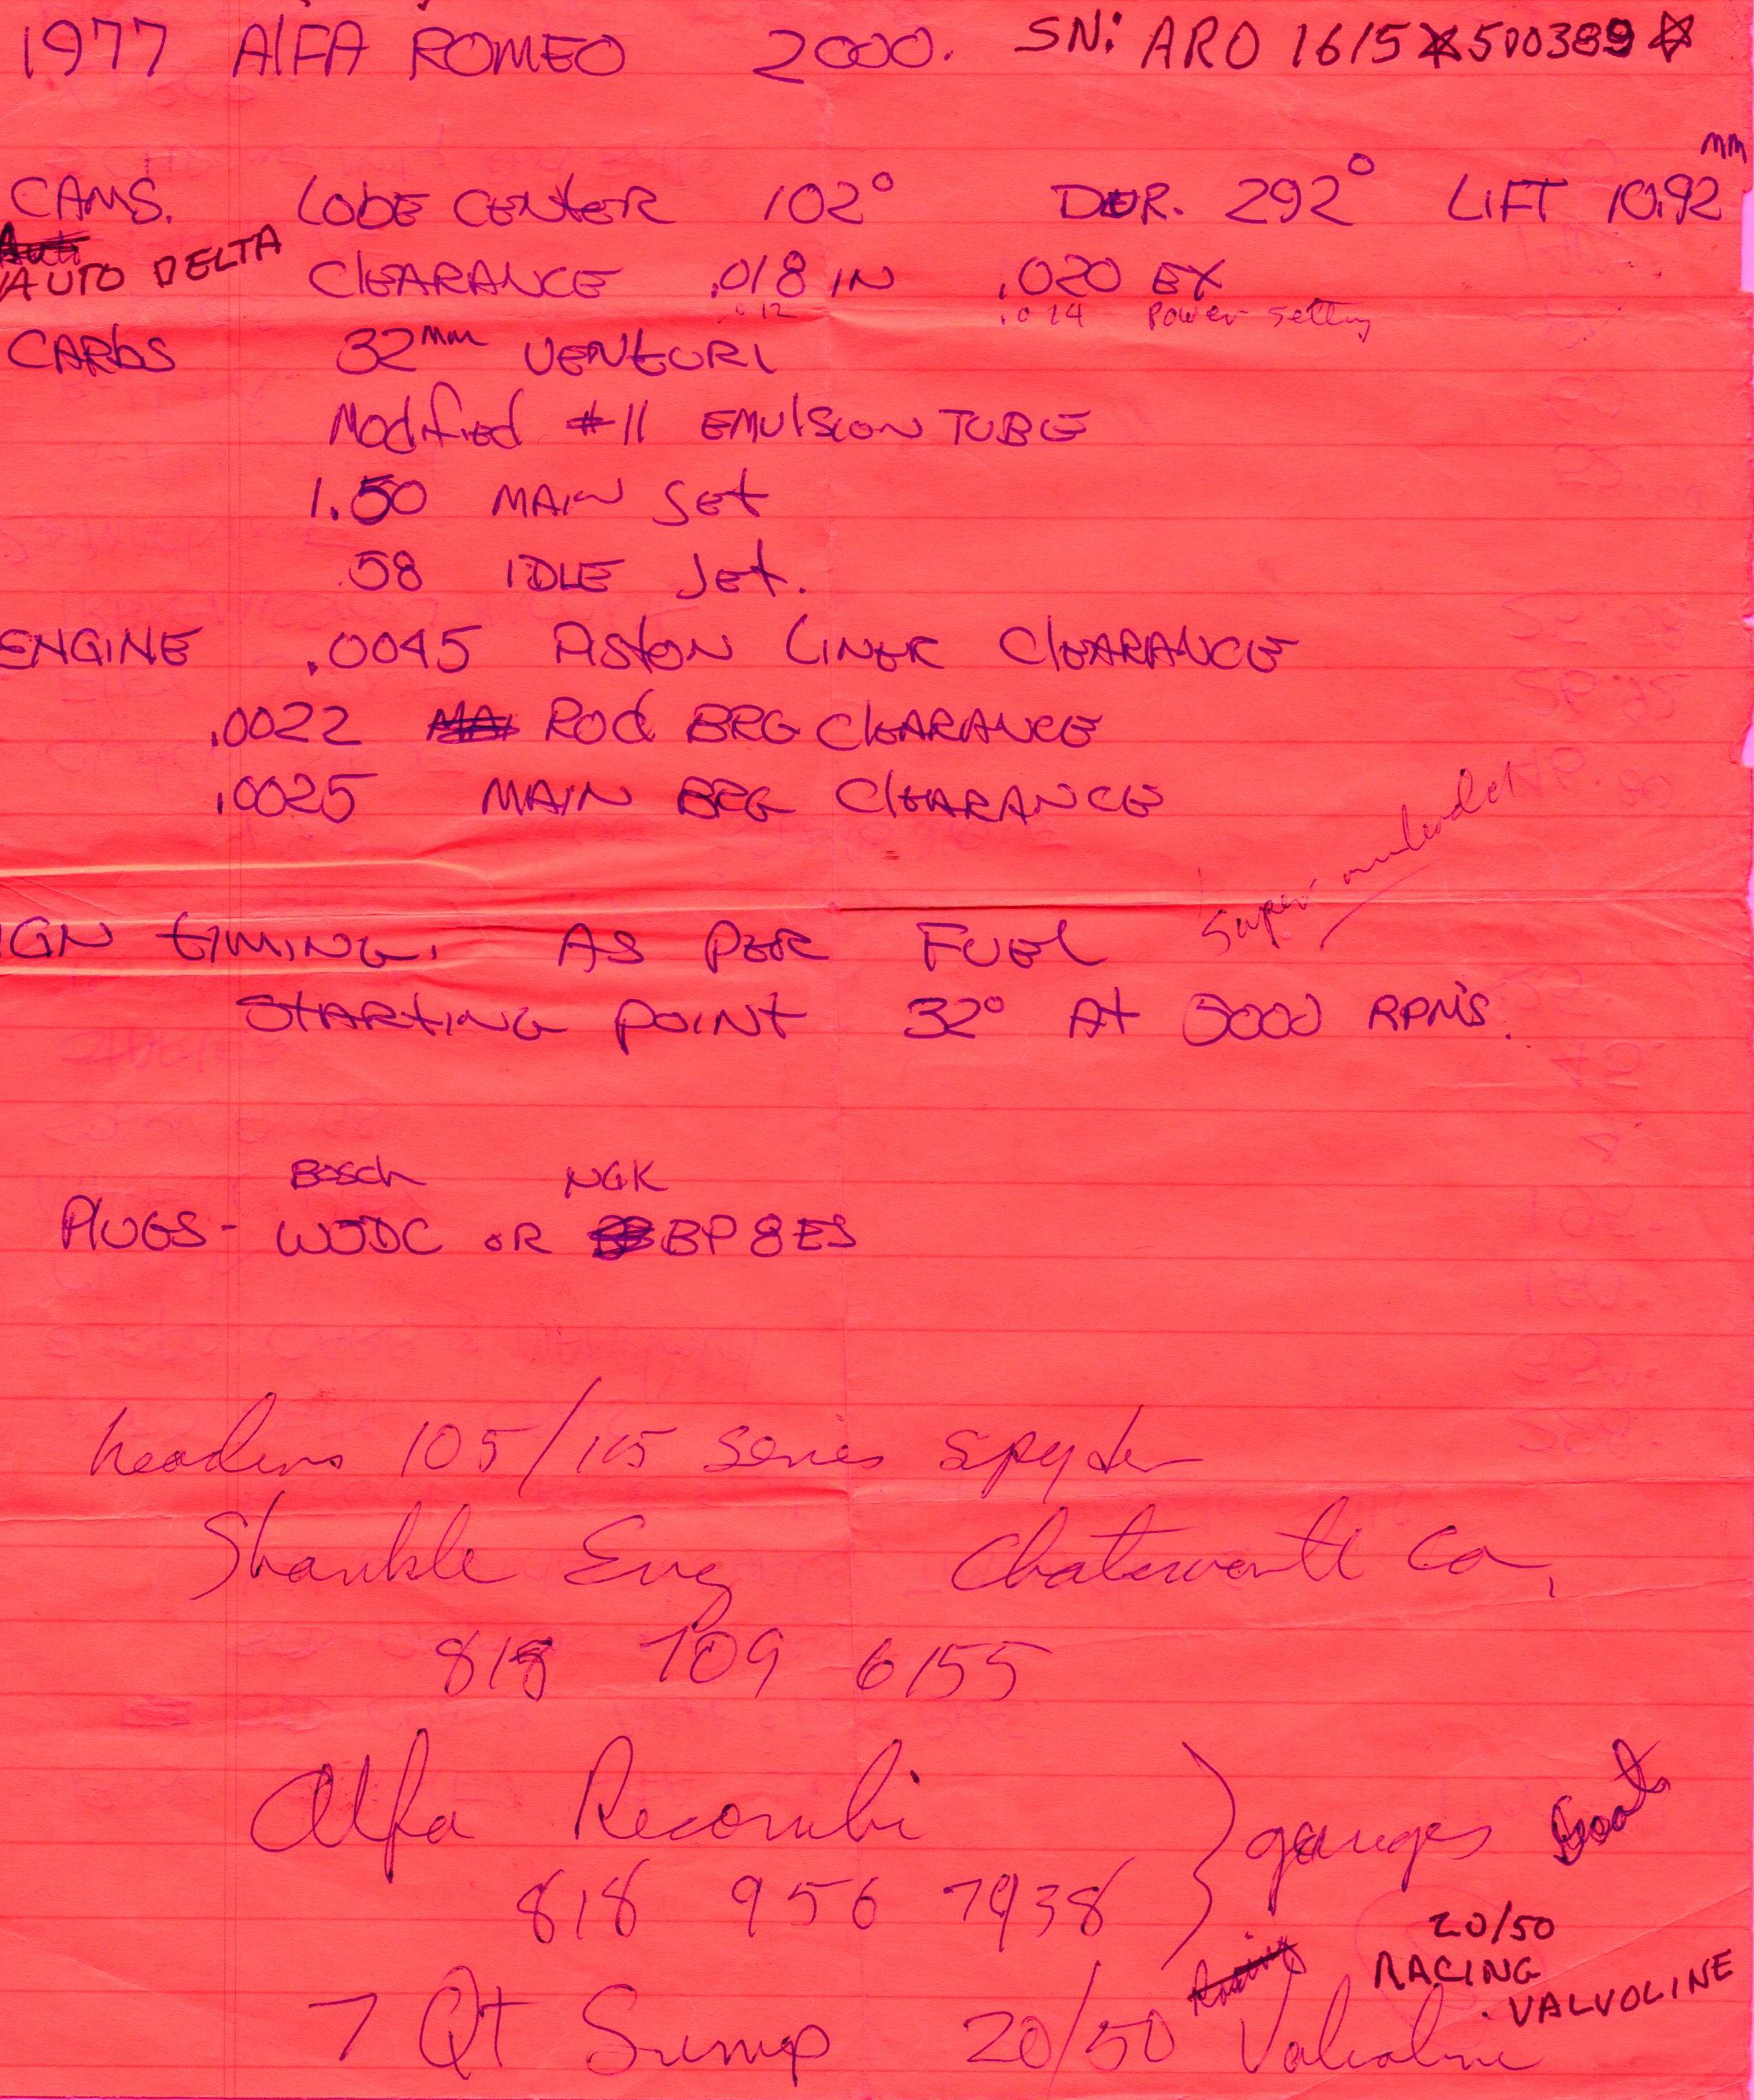 1977 AlFA ROMEO 2000. SN: ARO 1615☆500389☆
CAMS. LOBE CENTER 102° DUR. 292° LIFT 10.92 mm
AUTO DELTA
CLEARANCE .018 IN .020 EX
.012 .014 Power setting
CARBS 32mm VENTURI
Modified #11 EMULSION TUBE
1.50 MAIN Jet
58 IDLE Jet.
ENGINE .0045 PISTON LINER CLEARANCE
.0022 ROD BRG CLEARANCE
.0025 MAIN BRG CLEARANCE
IGN TIMING. AS PER FUEL Super unleaded
STARTING POINT 32° At 5000 RPM'S.
Bosch NGK
PLUGS - OR BP8ES
headers 105/115 series spyder
Shankle Eng Chatsworth Ca,
818 709 6155
Alfa } gauges
818 956 7938
20/50
RACING
VALVOLINE
7 Qt Sump 20/50 Valvoline